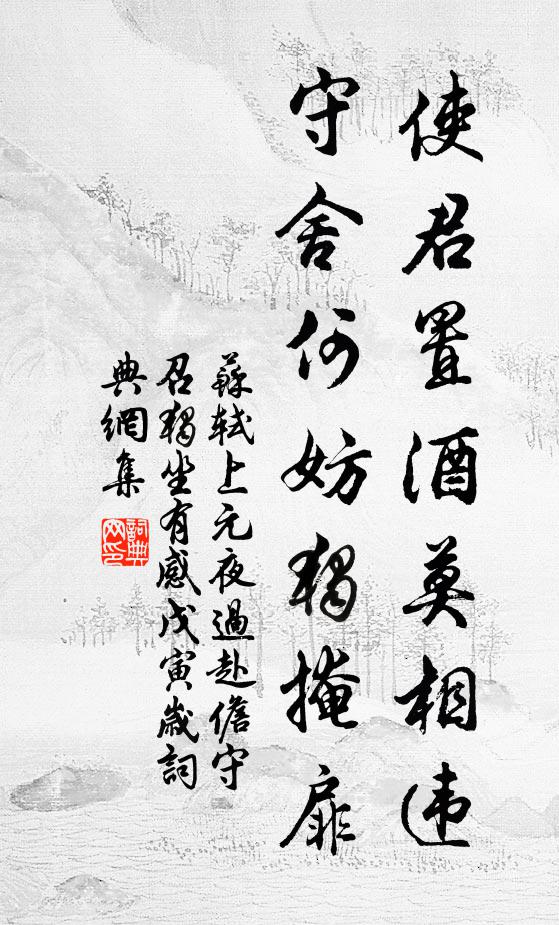 使君置酒莫相违
守舍何妨獨掩扉
蘇軾上元夜過赴儋守
召獨坐有感戊寅歲詞
典網集
詞典
网印